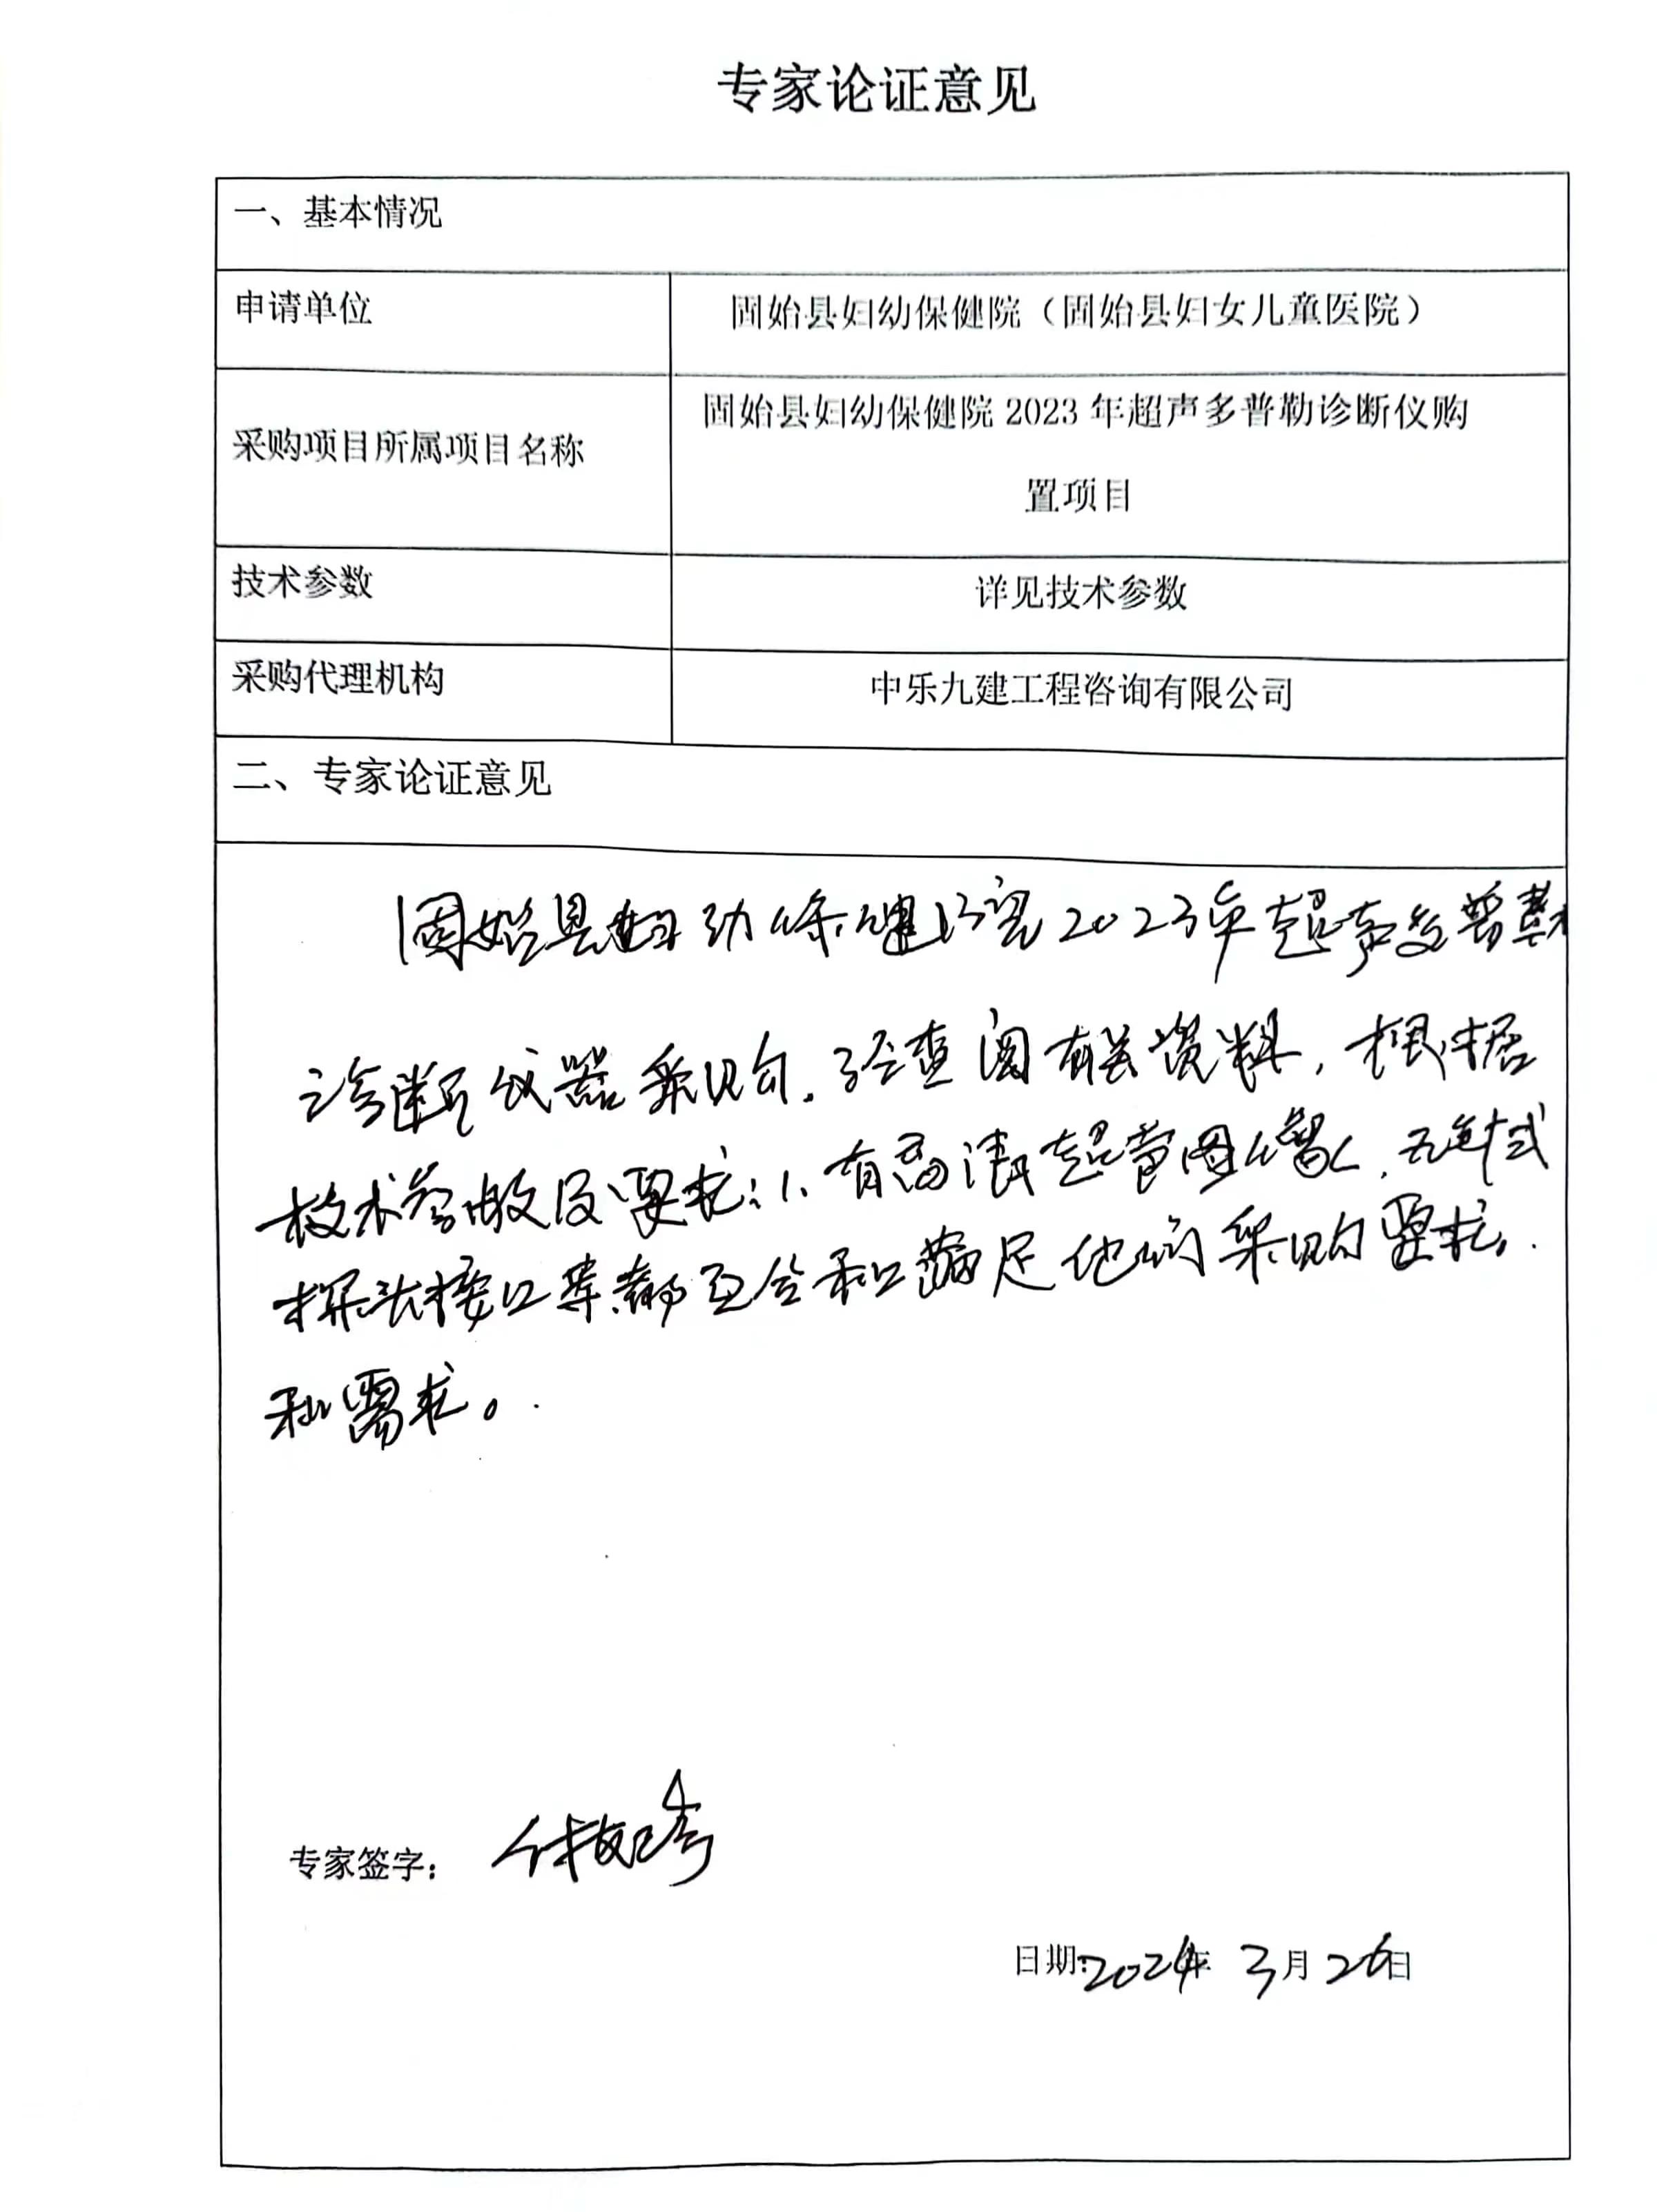 专家论证意见
一、基本情况
申请单位
固始县妇幼保健院（固始县妇女儿童医院）
采购项目所属项目名称
固始县妇幼保健院 2023 年超声多普勒诊断仪购
置项目
技术参数
详见技术参数
采购代理机构
中乐九建工程咨询有限公司
二、专家论证意见
固始县妇幼保健院2023年超声多普勒
诊断仪器采购，经查阅有关资料，根据
技术参数及要求：1、有高清超宽图像，
探头接口等都符合和满足他们采购要求，
和需求。
专家签字：
日期：2024年 3月 26日